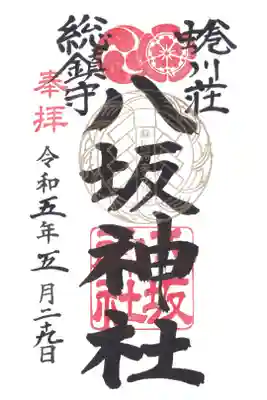 川荘
総鎮守
八坂神社
奉拝
令和五年五月二十九日